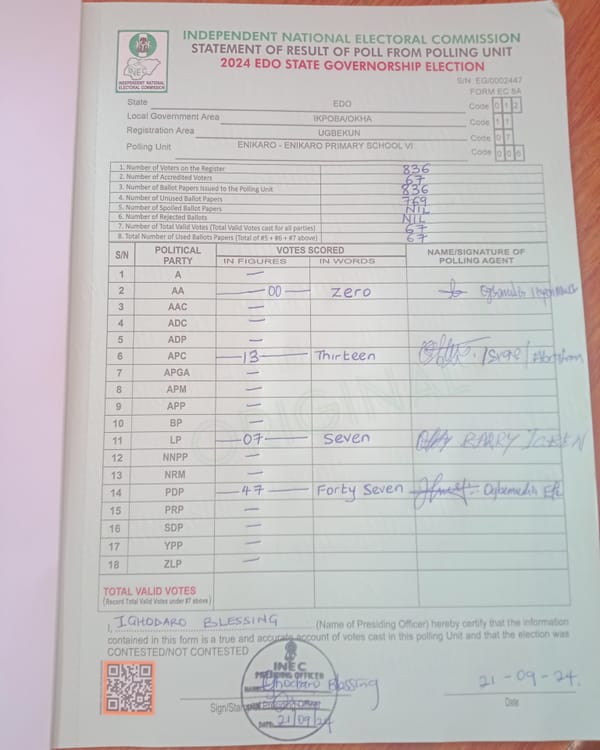 INDEPENDENT NATIONAL ELECTORAL COMMISSION
STATEMENT OF RESULT OF POLL FROM POLLING UNIT
2024 EDO STATE GOVERNORSHIP ELECTION
INEC
INDEPENDENT NATIONAL
ELECTORAL COMMISSION
S/N: EG/0002447
FORM EC 8A
State EDO Code 0 1 2
Local Government Area IKPOBA/OKHA Code 1 1
Registration Area UGBEKUN Code 0 7
Polling Unit ENIKARO - ENIKARO PRIMARY SCHOOL VI Code 0 0 6
1. Number of Voters on the Register 836
2. Number of Accredited Voters 67
3. Number of Ballot Papers Issued to the Polling Unit 836
4. Number of Unused Ballot Papers 769
5. Number of Spoiled Ballot Papers NIL
6. Number of Rejected Ballots NIL
7. Number of Total Valid Votes (Total Valid Votes cast for all parties) 67
8. Total Number of Used Ballots Papers (Total of #5 + #6 + #7 above) 67
S/N POLITICAL PARTY VOTES SCORED NAME/SIGNATURE OF POLLING AGENT
IN FIGURES IN WORDS
1 A —
2 AA —00— Zero
3 AAC —
4 ADC —
5 ADP —
6 APC —13— Thirteen
7 APGA —
8 APM —
9 APP —
10 BP —
11 LP —07— Seven BARRY
12 NNPP —
13 NRM —
14 PDP —47— Forty Seven Ogbemudia
15 PRP —
16 SDP —
17 YPP —
18 ZLP —
ORIGINAL
TOTAL VALID VOTES
(Record Total Valid Votes under #7 above)
I, IGHODARO BLESSING (Name of Presiding Officer) hereby certify that the information
contained in this form is a true and accurate account of votes cast in this polling Unit and that the election was
CONTESTED/NOT CONTESTED
INEC
PRESIDING OFFICER
Ighodaro Blessing
21-09-24.
Sign/Stamp
Date
DATE 21/09/24